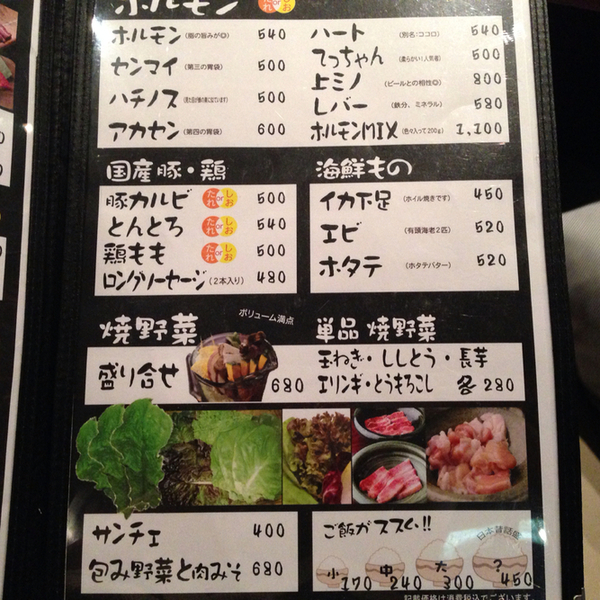 ホルモン たれ or しお
ホルモン (脂の旨みが◎) 540
センマイ (第三の胃袋) 500
ハチノス 500
アカセン (第四の胃袋) 600
ハート (別名:ココロ) 540
てっちゃん (柔らかい!人気者) 500
上ミノ (ビールとの相性◎) 800
レバー (鉄分、ミネラル) 580
ホルモンMIX (色々入って200g) 1,100
国産豚・鶏
豚カルビ たれ or しお 500
とんとろ たれ or しお 540
鶏もも たれ or しお 500
ロングソーセージ (2本入り) 480
海鮮もの
イカ下足 (ホイル焼きです) 450
エビ (有頭海老2匹) 520
ホタテ (ホタテバター) 520
焼野菜
ボリューム満点
盛り合せ 680
単品 焼野菜
玉ねぎ・ししとう・長芋
エリンギ・とうもろこし 各280
サンチェ 400
包み野菜と肉みそ 680
ご飯がススむ!!
日本昔話盛
小 170 中 240 大 300 ? 450
記載価格は消費税込でございます。